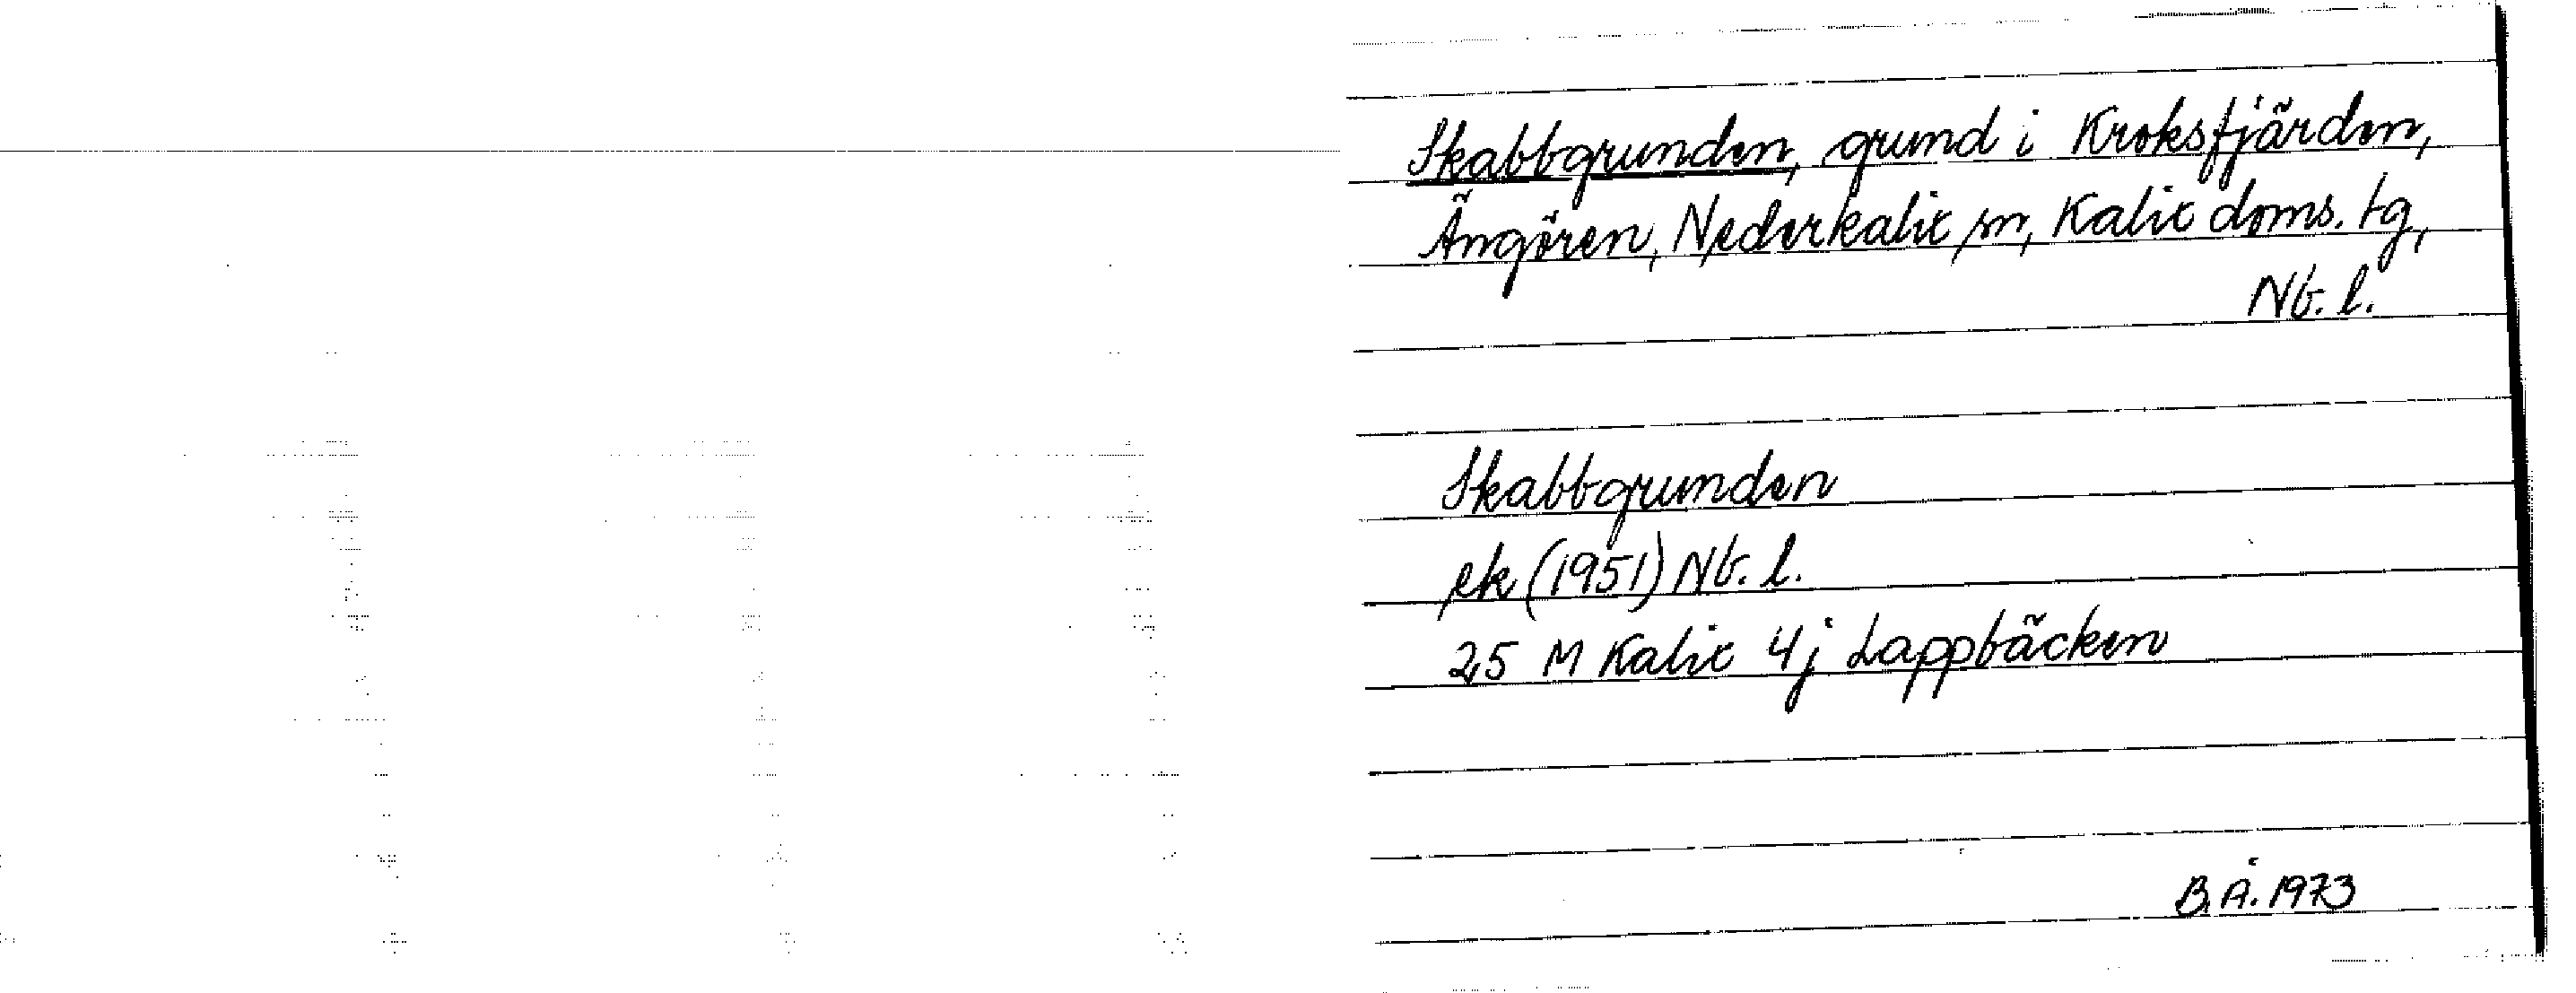 Skabbgrunden, grund i Kroksfjärden,
Ängören, Nederkalix sn, Kalix doms. tg,
Nb. l.
Skabbgrunden
ek (1951) Nb. l.
25 M Kalix 4j Lappbäcken
B.Å. 1973